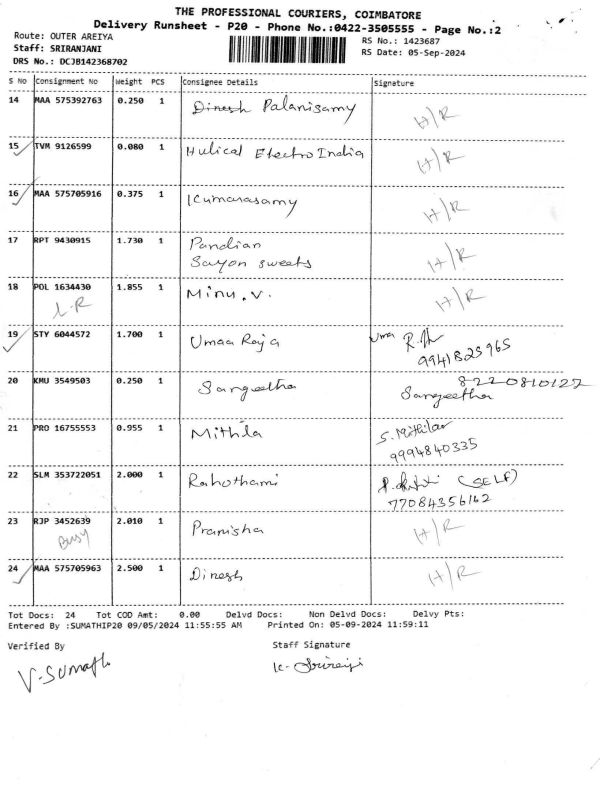 THE PROFESSIONAL COURIERS, COIMBATORE
Delivery Runsheet - P20 - Phone No.:0422-3505555 - Page No.:2
Route: OUTER AREIYA
RS No.: 1423687
Staff: SRIRANJANI
RS Date: 05-Sep-2024
DRS No.: DCJB142368702
S No Consignment No Weight PCS Consignee Details Signature
14 MAA 575392763 0.250 1 Dinesh Palanisamy H/R
15 TVM 9126599 0.080 1 Hulical Electro India H/R
16 MAA 575705916 0.375 1 Kumarasamy H/R
17 RPT 9430915 1.730 1 Pandian H/R
Sayon sweets
18 POL 1634430 1.855 1 Minu.V. H/R
L.R
19 STY 6044572 1.700 1 Umaa Raja Uma
9941825965
20 KMU 3549503 0.250 1 Sangeetha 8220810127
Sangeetha
21 PRO 16755553 0.955 1 Mithila S. Mithilar
9994840335
22 SLM 353722051 2.000 1 Rahothami (SELF)
77084356162
23 RJP 3452639 2.010 1 Pranisha H/R
Busy
24 MAA 575705963 2.500 1 Dinesh H/R
Tot Docs: 24 Tot COD Amt: 0.00 Delvd Docs: Non Delvd Docs: Delvy Pts:
Entered By :SUMATHIP20 09/05/2024 11:55:55 AM Printed On: 05-09-2024 11:59:11
Verified By Staff Signature
V-Sumathi